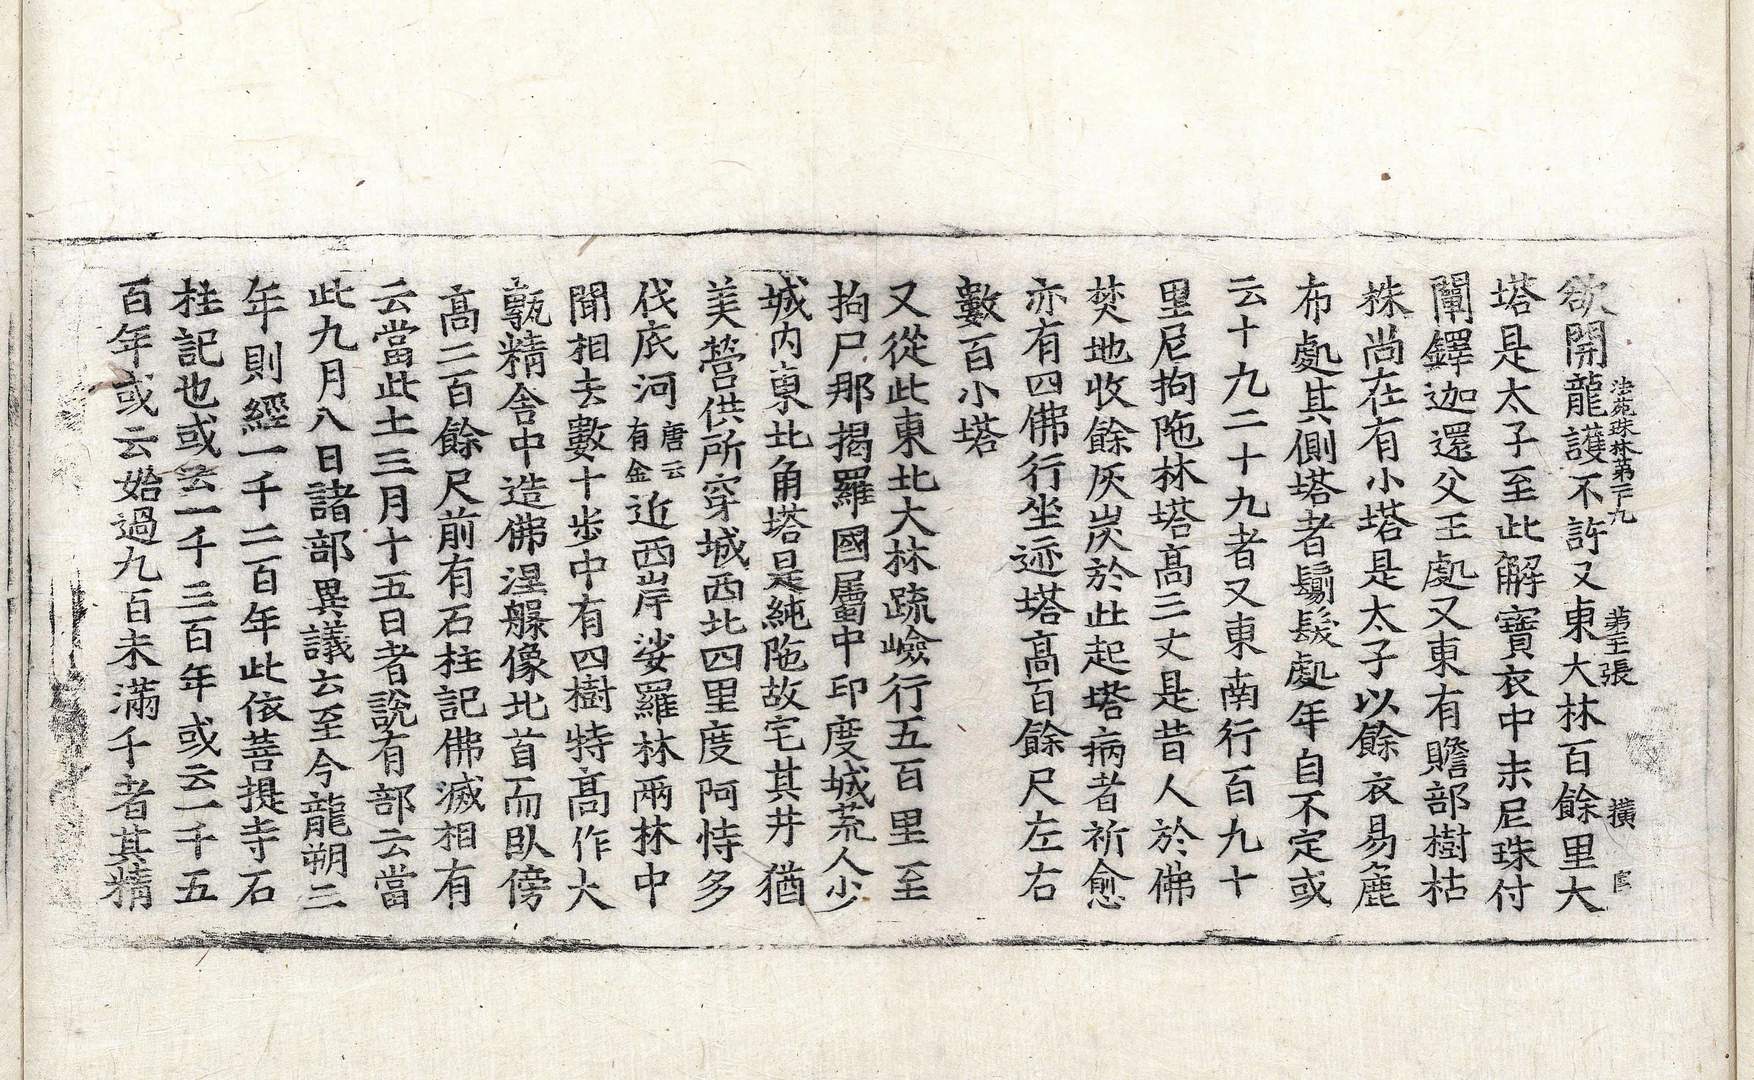 法苑珠林第二十九 第三張 橫
欲開龍護不許又東大林百餘里大
塔是太子至此解寶衣中末尼珠付
闡鐸迦還父王處又東有贍部樹枯
株尚在有小塔是太子以餘衣易麁
布處其側塔者鬀髮處年自不定或
云十九二十九者又東南行百九十
里尼拘陁林塔高三丈是昔人於佛
焚地收餘灰炭於此起塔病者祈愈
亦有四佛行坐迹塔高百餘尺左右
數百小塔
又從此東北大林疏嶮行五百里至
拘尸那揭羅國屬中印度城荒人少
城內東北角塔是純陁故宅其井猶
美營供所穿城西北四里度阿恃多
伐底河唐云有金近西岸娑羅林兩林中
間相去數十步中有四樹特高作大
甎精舍中造佛涅槃像北首而臥傍
高二百餘尺前有石柱記佛滅相有
云當此土三月十五日者說有部云當
此九月八日諸部異議云至今龍朔三
年則經一千二百年此依菩提寺石
柱記也或云一千三百年或云一千五
百年或云始過九百未滿千者其精